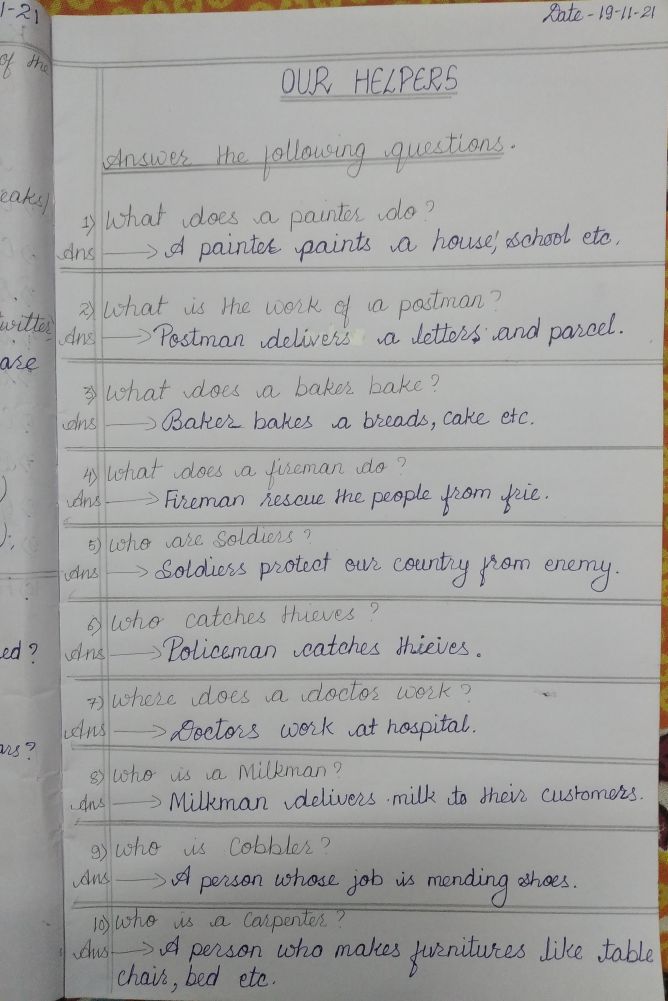 1-21
Date - 19-11-21
of the
OUR HELPERS
Answer the following questions.
eaks)
1) What does a painter do?
Ans → A painter paints a house, school etc.
2) What is the work of a postman?
twitter
Ans → Postman delivers a letters and parcel.
are
3) What does a baker bake?
Ans → Baker bakes a breads, cake etc.
4) What does a fireman do?
Ans → Fireman rescue the people from frie.
5) Who are Soldiers?
Ans → Soldiers protect our country from enemy.
6) Who catches thieves?
ed?
Ans → Policeman catches thieives.
7) Where does a doctor work?
Ans → Doctors work at hospital.
ars?
8) Who is a Milkman?
Ans → Milkman delivers milk to their customers.
9) Who is Cobbler?
Ans → A person whose job is mending shoes.
10) Who is a Carpenter?
Ans → A person who makes furnitures like table
chair, bed etc.